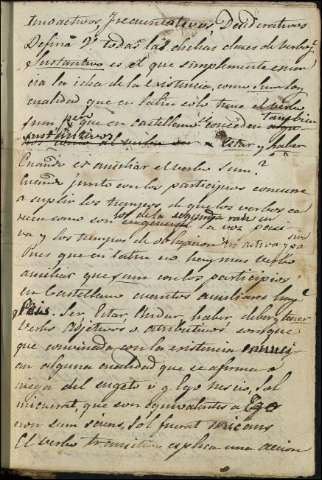 Incoactivos, Frecuentativos, Desiderativos
Defina V. todas las dichas clases de verbos
Sustantivo es el que simplemente enun
cia la idea de la existencia, como sum
cualidad que en latin solo tiene el verbo
sum, pero que en castellano tambien
Estar y haber
Cuando es auxiliar el verbo Sum?
Cuando junto con los participios concurre
a suplir los tiempos, de que los verbos ca
recen como son los de la segunda raiz en
la voz pasi
va y los tiempos de obligacion en activa y pa
Pues que en latin no hay mas verbo
auxiliar que sum con los participios
en Castellano cuantos auxiliares hay?
Ser, Estar, haber, deber, tener
Verbos Adjetivos o atributivos son que
que convinada con la existencia
en alguna cualidad que se afirma o
niega del sugeto v. g. Ego nescio, Sol
micuerat, que son equivalentes a Ego
non sum sciens, Sol fuerat micans
El verbo transitivo esplica una accion